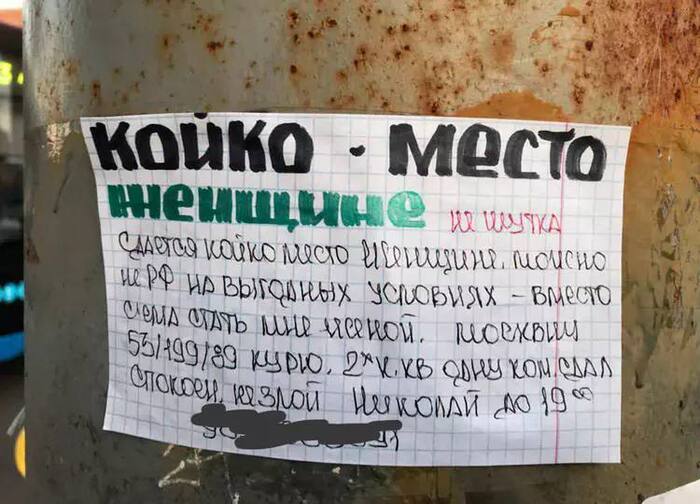 КОЙКО - МЕСТО
ЖЕНЩИНЕ НЕ ШУТКА
СДАЕТСЯ КОЙКО МЕСТО ЖЕНЩИНЕ, МОЖНО
НЕ РФ НА ВЫГОДНЫХ УСЛОВИЯХ - ВМЕСТО
СЪЕМА СТАТЬ МНЕ ЖЕНОЙ. МОСКВИЧ
53/199/89 КУРЮ. 2*К.КВ ОДНУ КОМ.СДАЛ
СПОКОЕН, НЕЗЛОЙ НИКОЛАЙ ДО 19⁰⁰